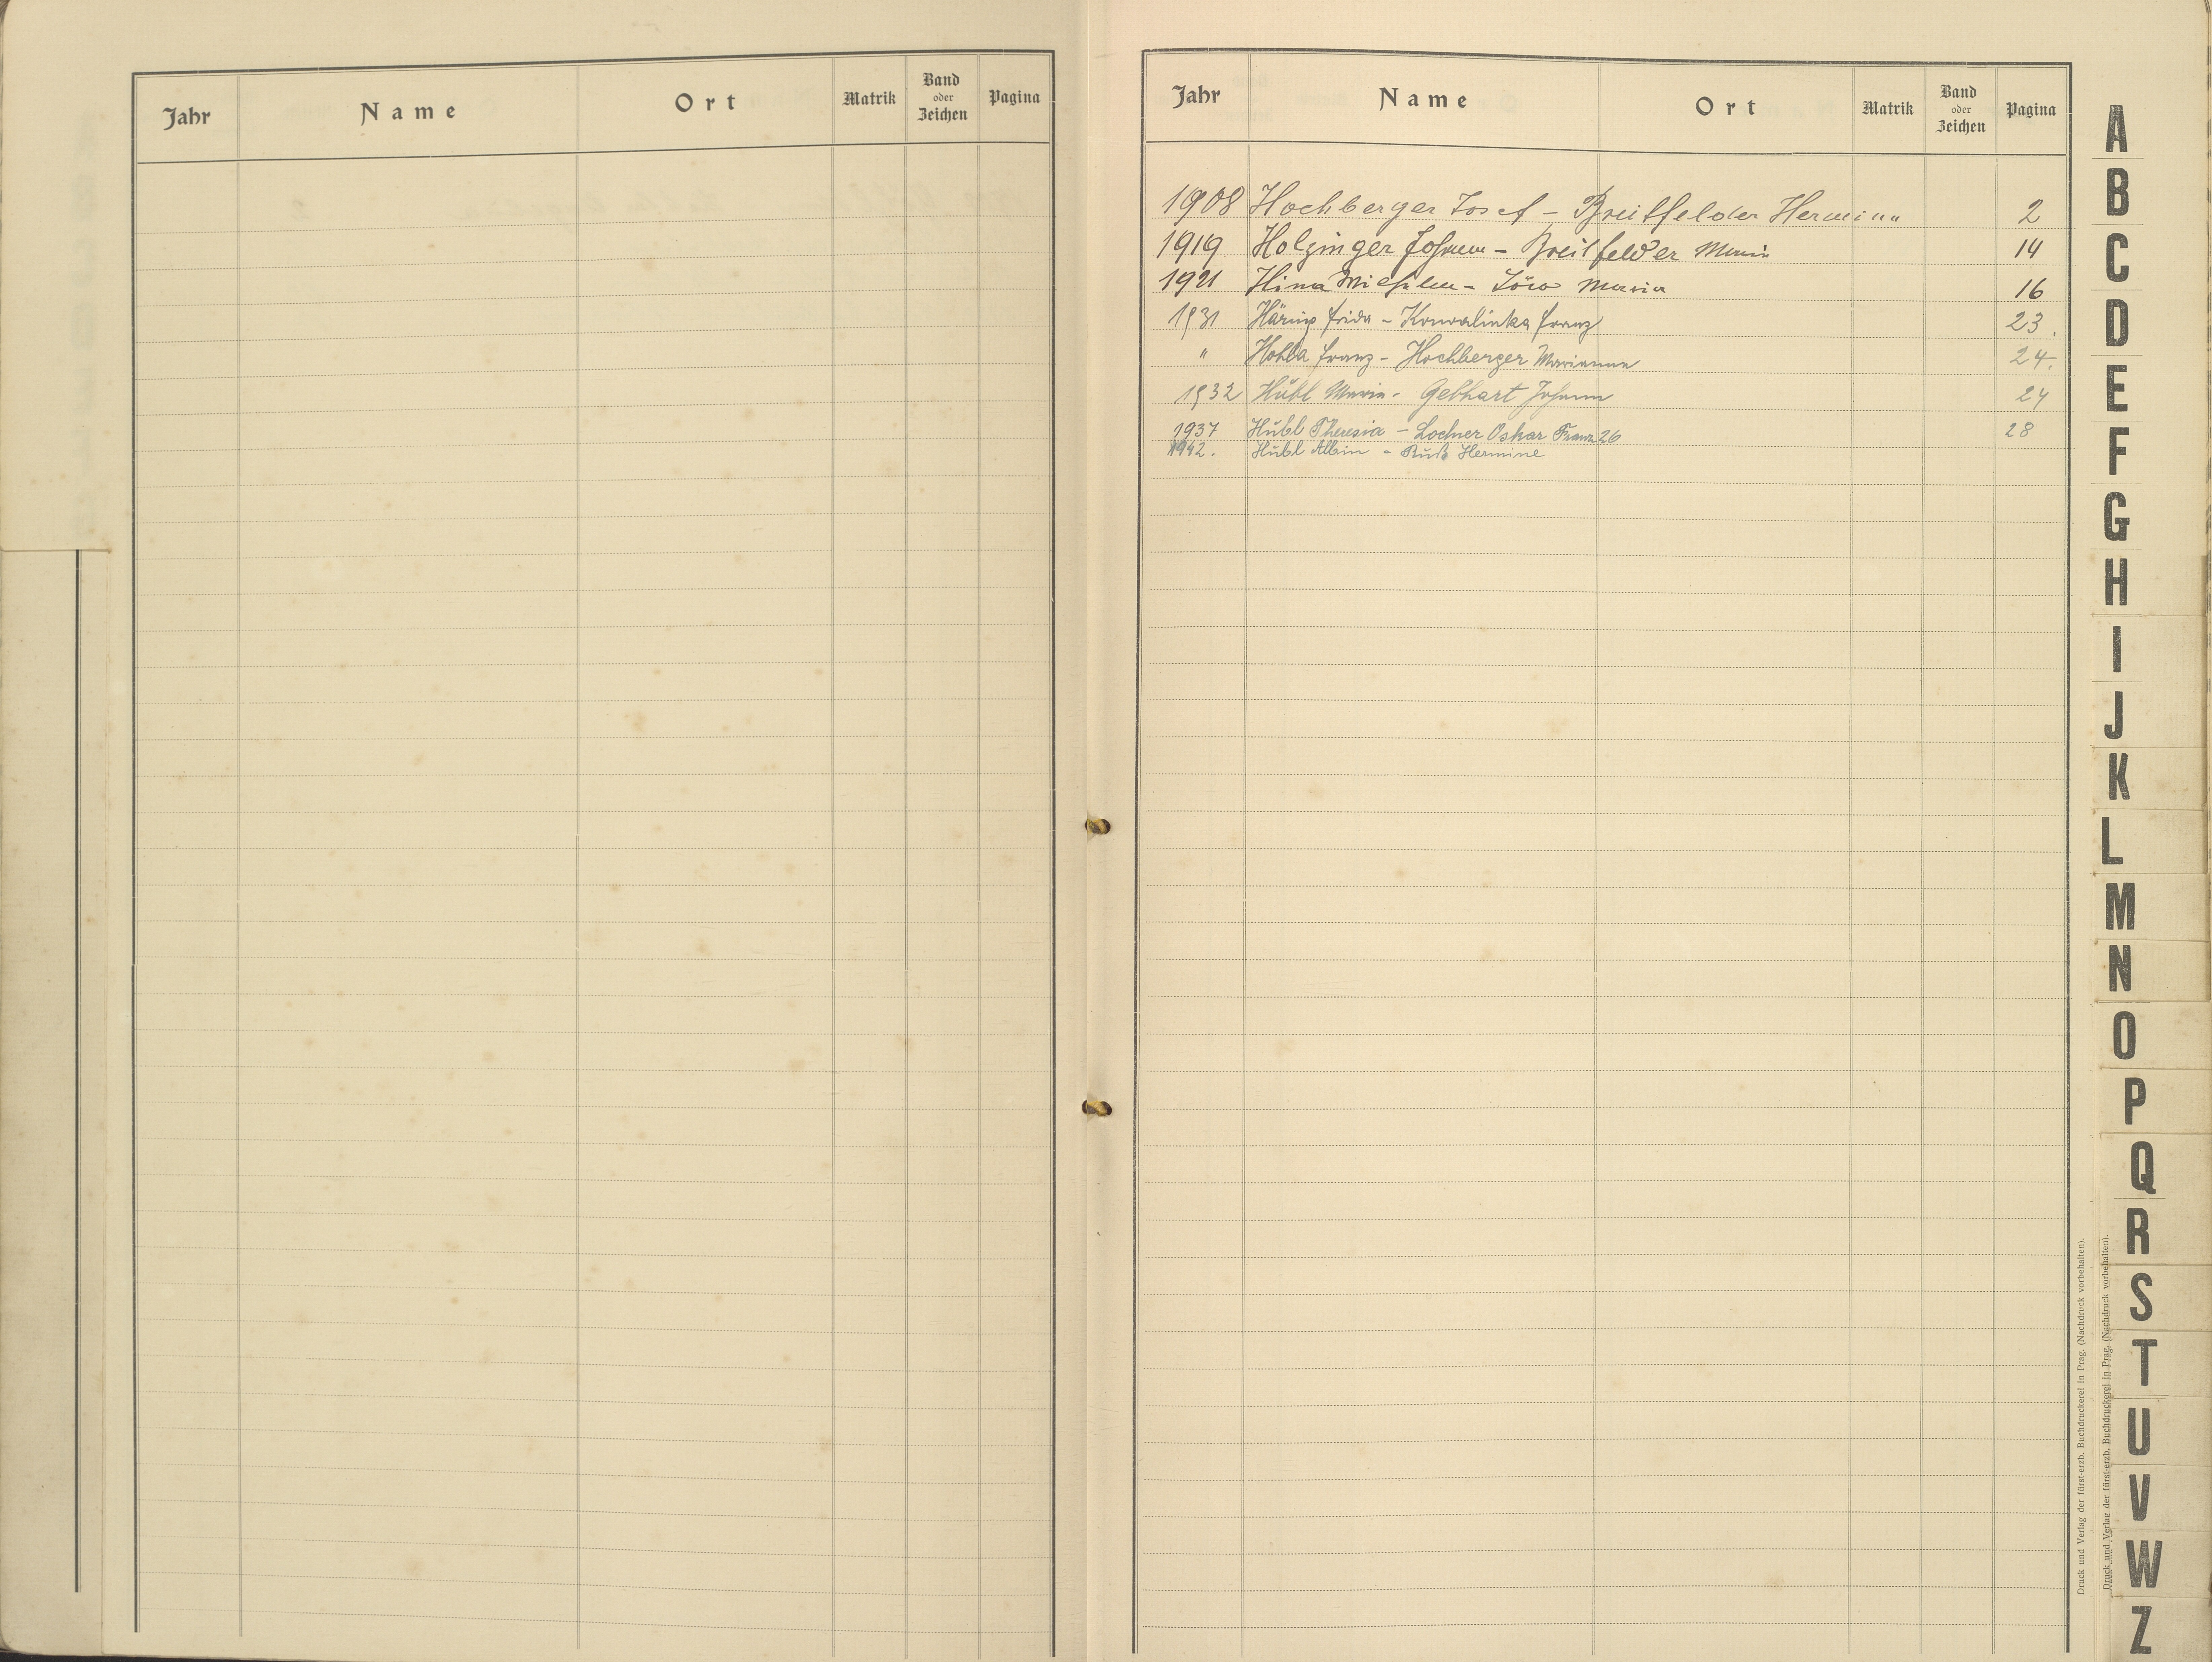 Jahr Name Ort Matrik Band oder Zeichen Pagina
Jahr Name Ort Matrik Band oder Zeichen Pagina
1908 Hochberger Josef - Breitfelder Hermine 2
1919 Holzinger Johann - Breitfelder Maria 14
1921 Maria 16
1931 Häring Frida - Franz 23.
" Franz - Hochberger Marianne 24.
1932 Hübl Maria - Gebhart Johann 24
1937 Hübl Theresia - Lochner Oskar Franz 26 28
1942. Hübl Albin - Ruß Hermine
A
B
C
D
E
F
G
H
I
J
K
L
M
N
O
P
Q
R
S
T
U
V
W
Z
Druck und Verlag der fürst-erzb. Buchdruckerei in Prag. (Nachdruck vorbehalten).
Druck und Verlag der fürst-erzb. Buchdruckerei in Prag. (Nachdruck vorbehalten).